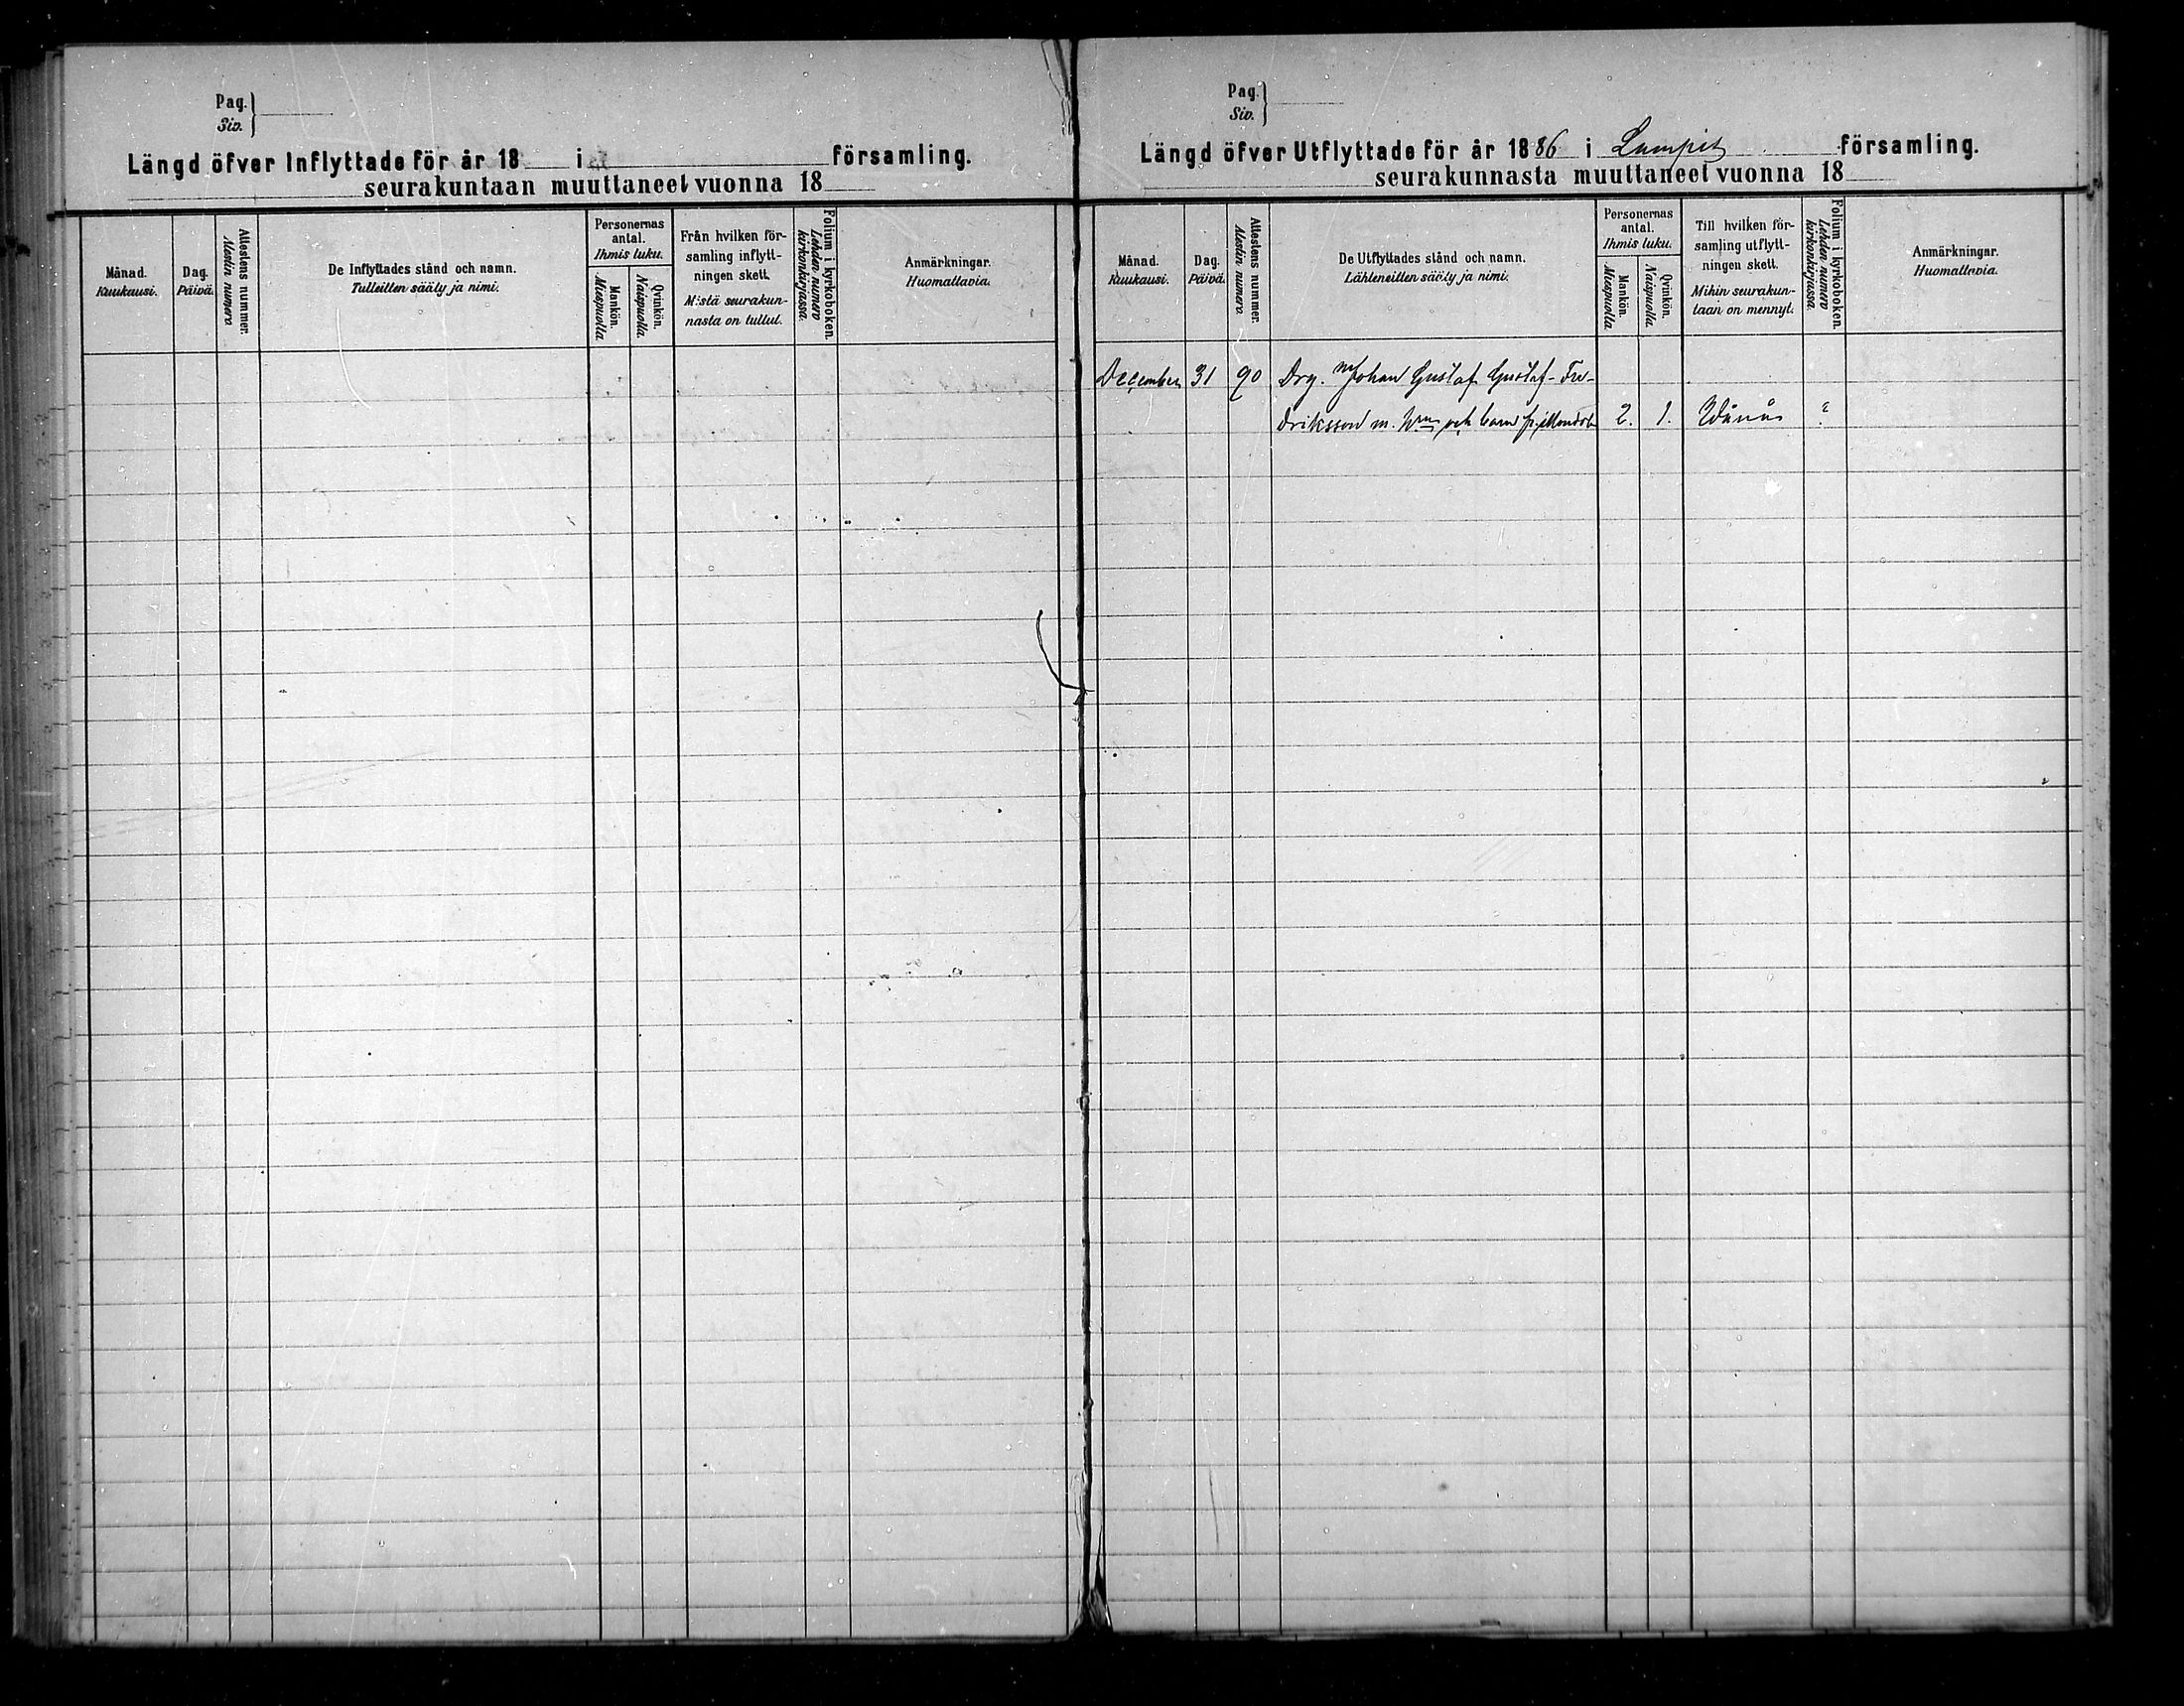 Pag.
Siv.
Längd öfver Inflyttade för år 18 i församling.
seurakuntaan muuttaneet vuonna 18
Månad.
Kuukausi.
Dag.
Päivä.
Attestens nummer.
Alestin numero
De Inflyttades stånd och namn.
Tulleitten sääty ja nimi.
Personernas
antal.
Ihmis luku.
Mankön.
Miespuolia
Qvinkön.
Naispuolia.
Från hvilken för-
samling inflytt-
ningen skett.
Mistä seurakun-
nasta on tullut.
Folium i kyrkoboken.
Lehden numero
kirkonkirjassa.
Anmärkningar.
Huomattavia.
Pag.
Siv.
Längd öfver Utflyttade för år 1886 i församling.
seurakunnasta muuttaneet vuonna 18
Månad.
Kuukausi.
Dag.
Päivä.
Attestens nummer.
Alestin numero
De Utflyttades stånd och namn.
Lähteneitten sääty ja nimi.
Personernas
antal.
Ihmis luku.
Mankön.
Miespuolia
Qvinkön.
Naispuolia.
Till hvilken för-
samling utflytt-
ningen skett.
Mihin seurakun-
taan on mennyt.
Folium i kyrkoboken.
Lehden numero
kirkonkirjassa.
Anmärkningar.
Huomattavia.
December 31 90 Drg. Johan Gustaf Gustaf-Fre-
driksson m. och barn 2. 1. Wånå ?